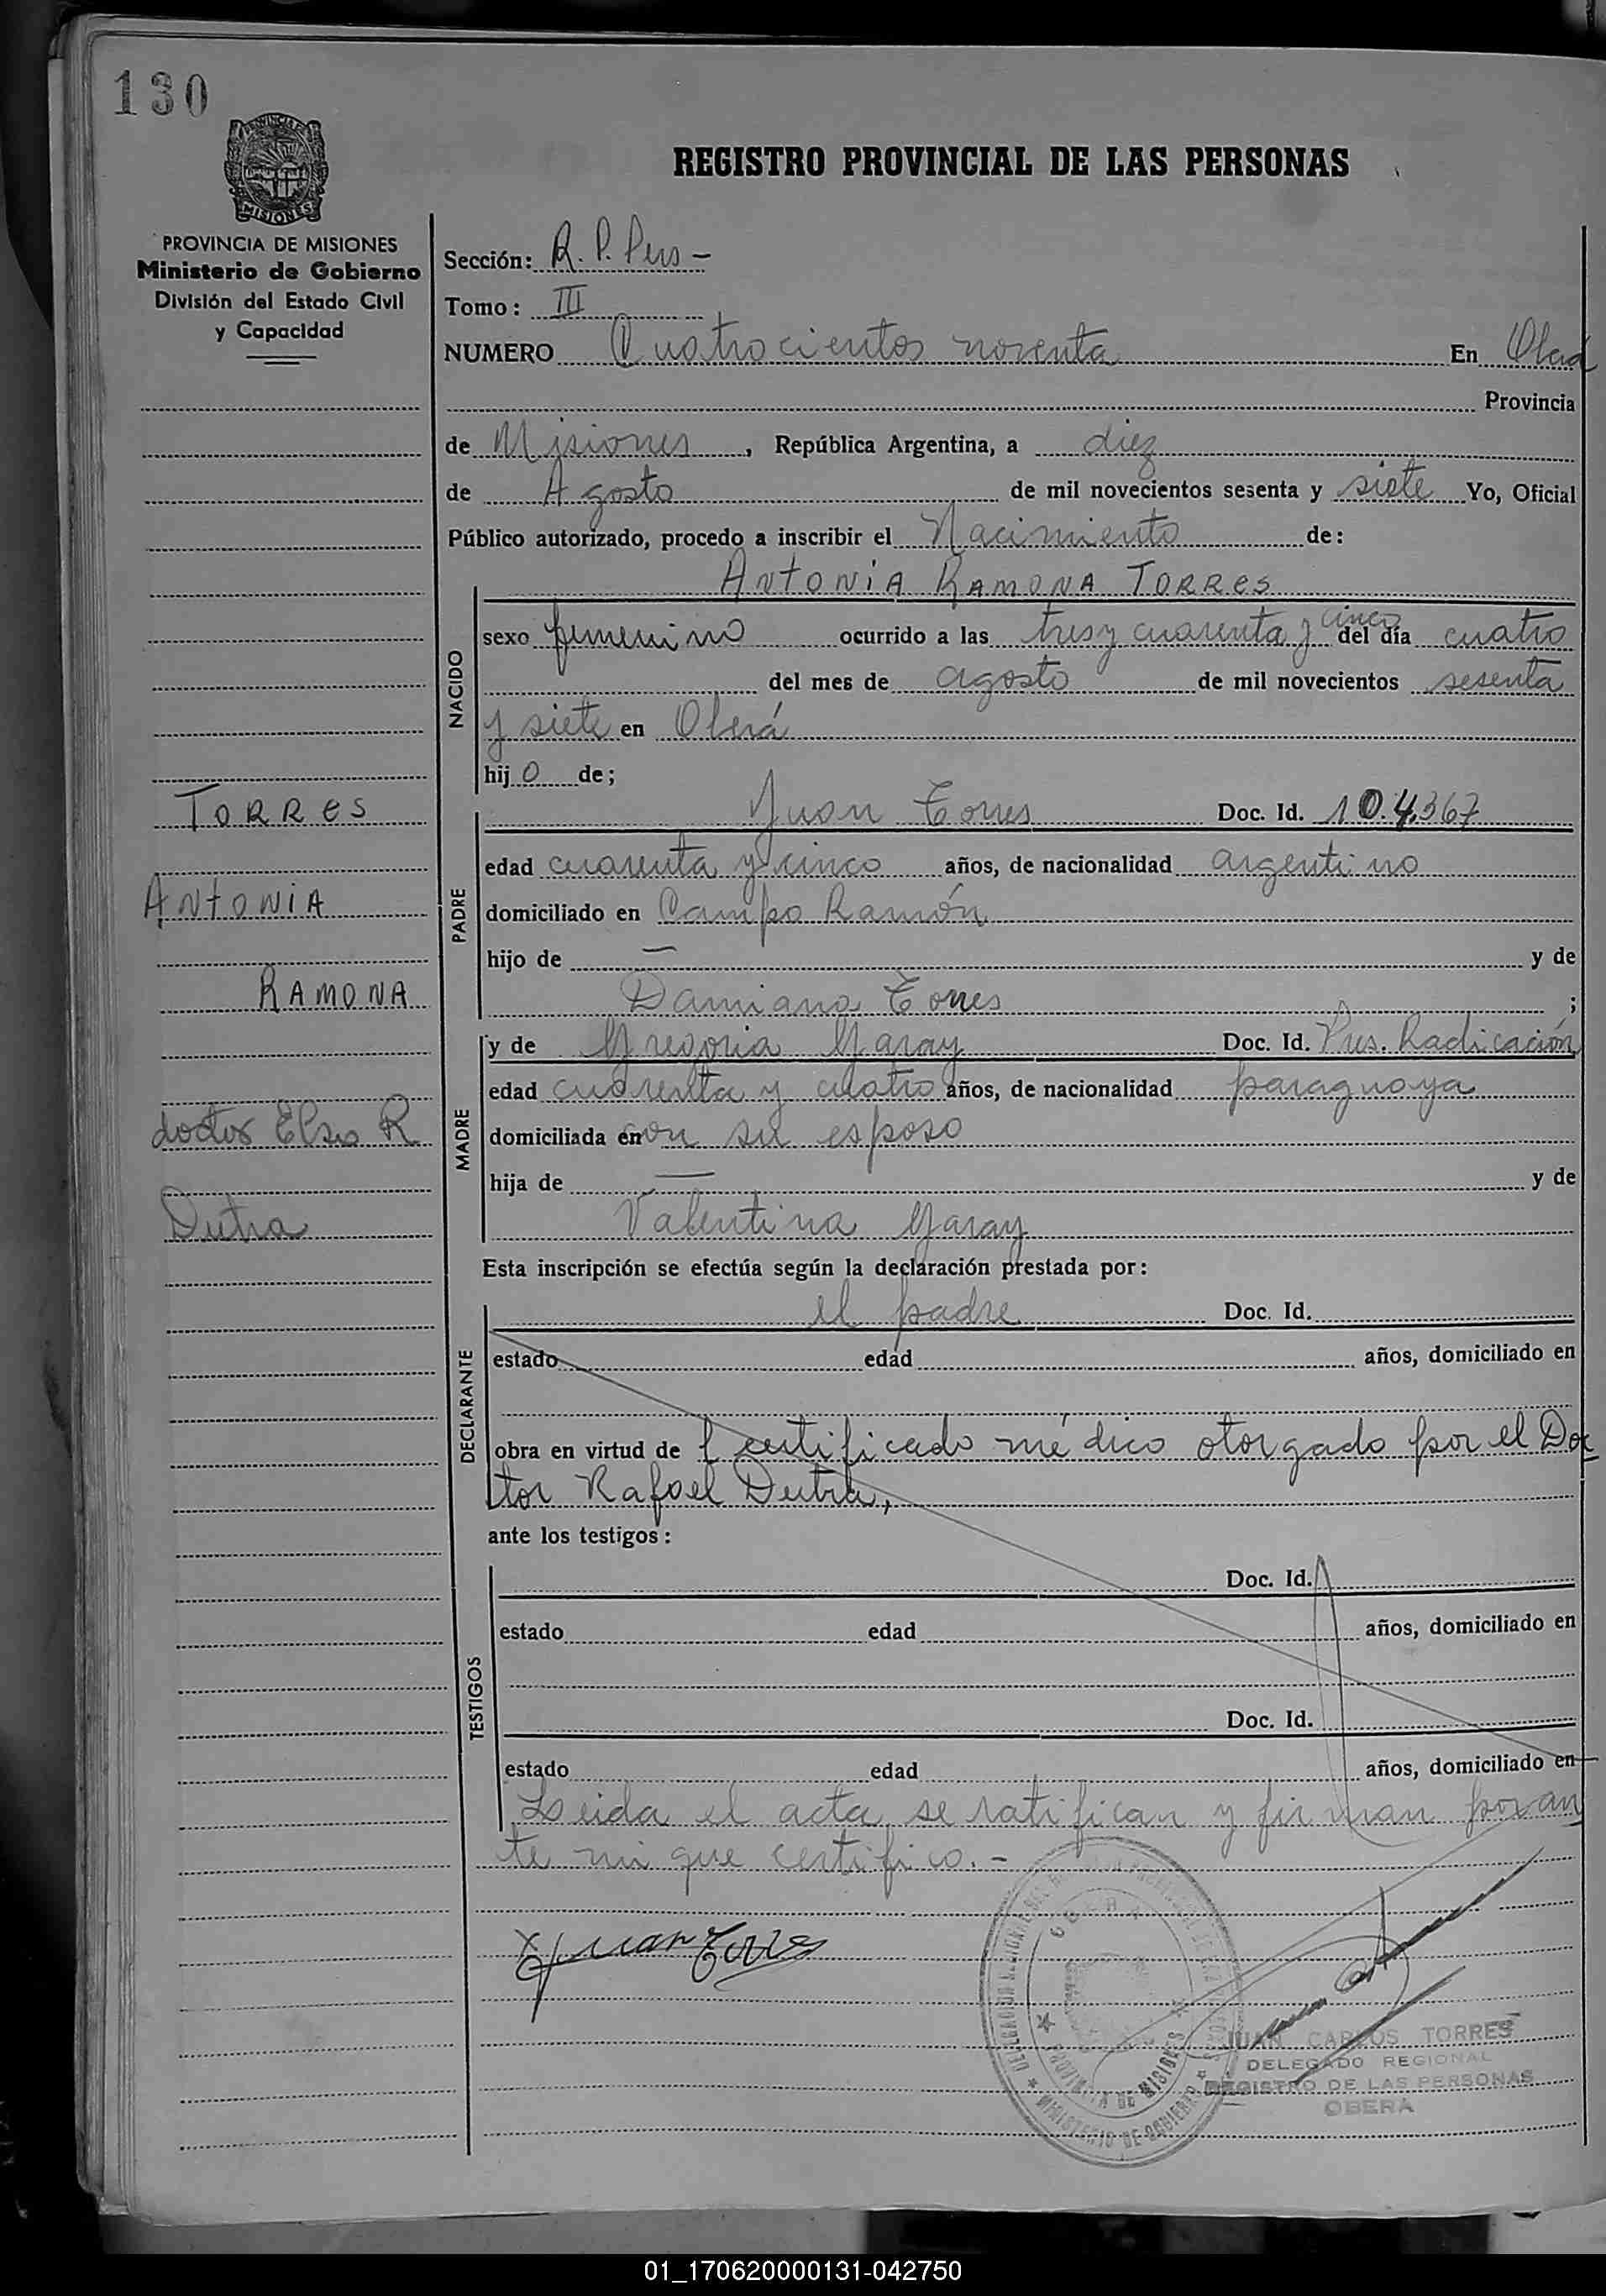 130
PROVINCIA DE MISIONES
Ministerio de Gobierno
División del Estado Civil
y Capacidad
TORRES
ANTONIA
RAMONA
doctor Elseo R
Dutra
REGISTRO PROVINCIAL DE LAS PERSONAS
Sección: R. P. Pers -
Tomo: III
NUMERO Cuatrocientos noventa En Oberá
Provincia
de Misiones, República Argentina, a diez
de Agosto de mil novecientos sesenta y siete Yo, Oficial
Público autorizado, procedo a inscribir el Nacimiento de:
ANTONIA RAMONA TORRES
NACIDO
sexo femenino ocurrido a las tres y cuarenta y cinco del día cuatro
del mes de agosto de mil novecientos sesenta
y siete en Oberá
hijo de;
PADRE
Juan Torres Doc. Id. 104.367
edad cuarenta y cinco años, de nacionalidad argentino
domiciliado en Campo Ramón
hijo de — y de
Damiana Torres ;
MADRE
y de Gregoria Garay Doc. Id. Pres. Radicación
edad cuarenta y cuatro años, de nacionalidad paraguaya
domiciliada en con su esposo
hija de — y de
Valentina Garay
Esta inscripción se efectúa según la declaración prestada por:
DECLARANTE
el padre Doc. Id.
estado edad años, domiciliado en
obra en virtud de l certificado médico otorgado por el Doc
tor Rafael Dutra,
ante los testigos:
TESTIGOS
Doc. Id.
estado edad años, domiciliado en
Doc. Id.
estado edad años, domiciliado en
Leida el acta se ratifican y firman por an
te mi que certifico. -
x Juan Torres
OBERA
PROVINCIA DE MISIONES
MINISTERIO DE GOBIERNO
JUAN CARLOS TORRES
DELEGADO REGIONAL
REGISTRO DE LAS PERSONAS
OBERA
01_170620000131-042750